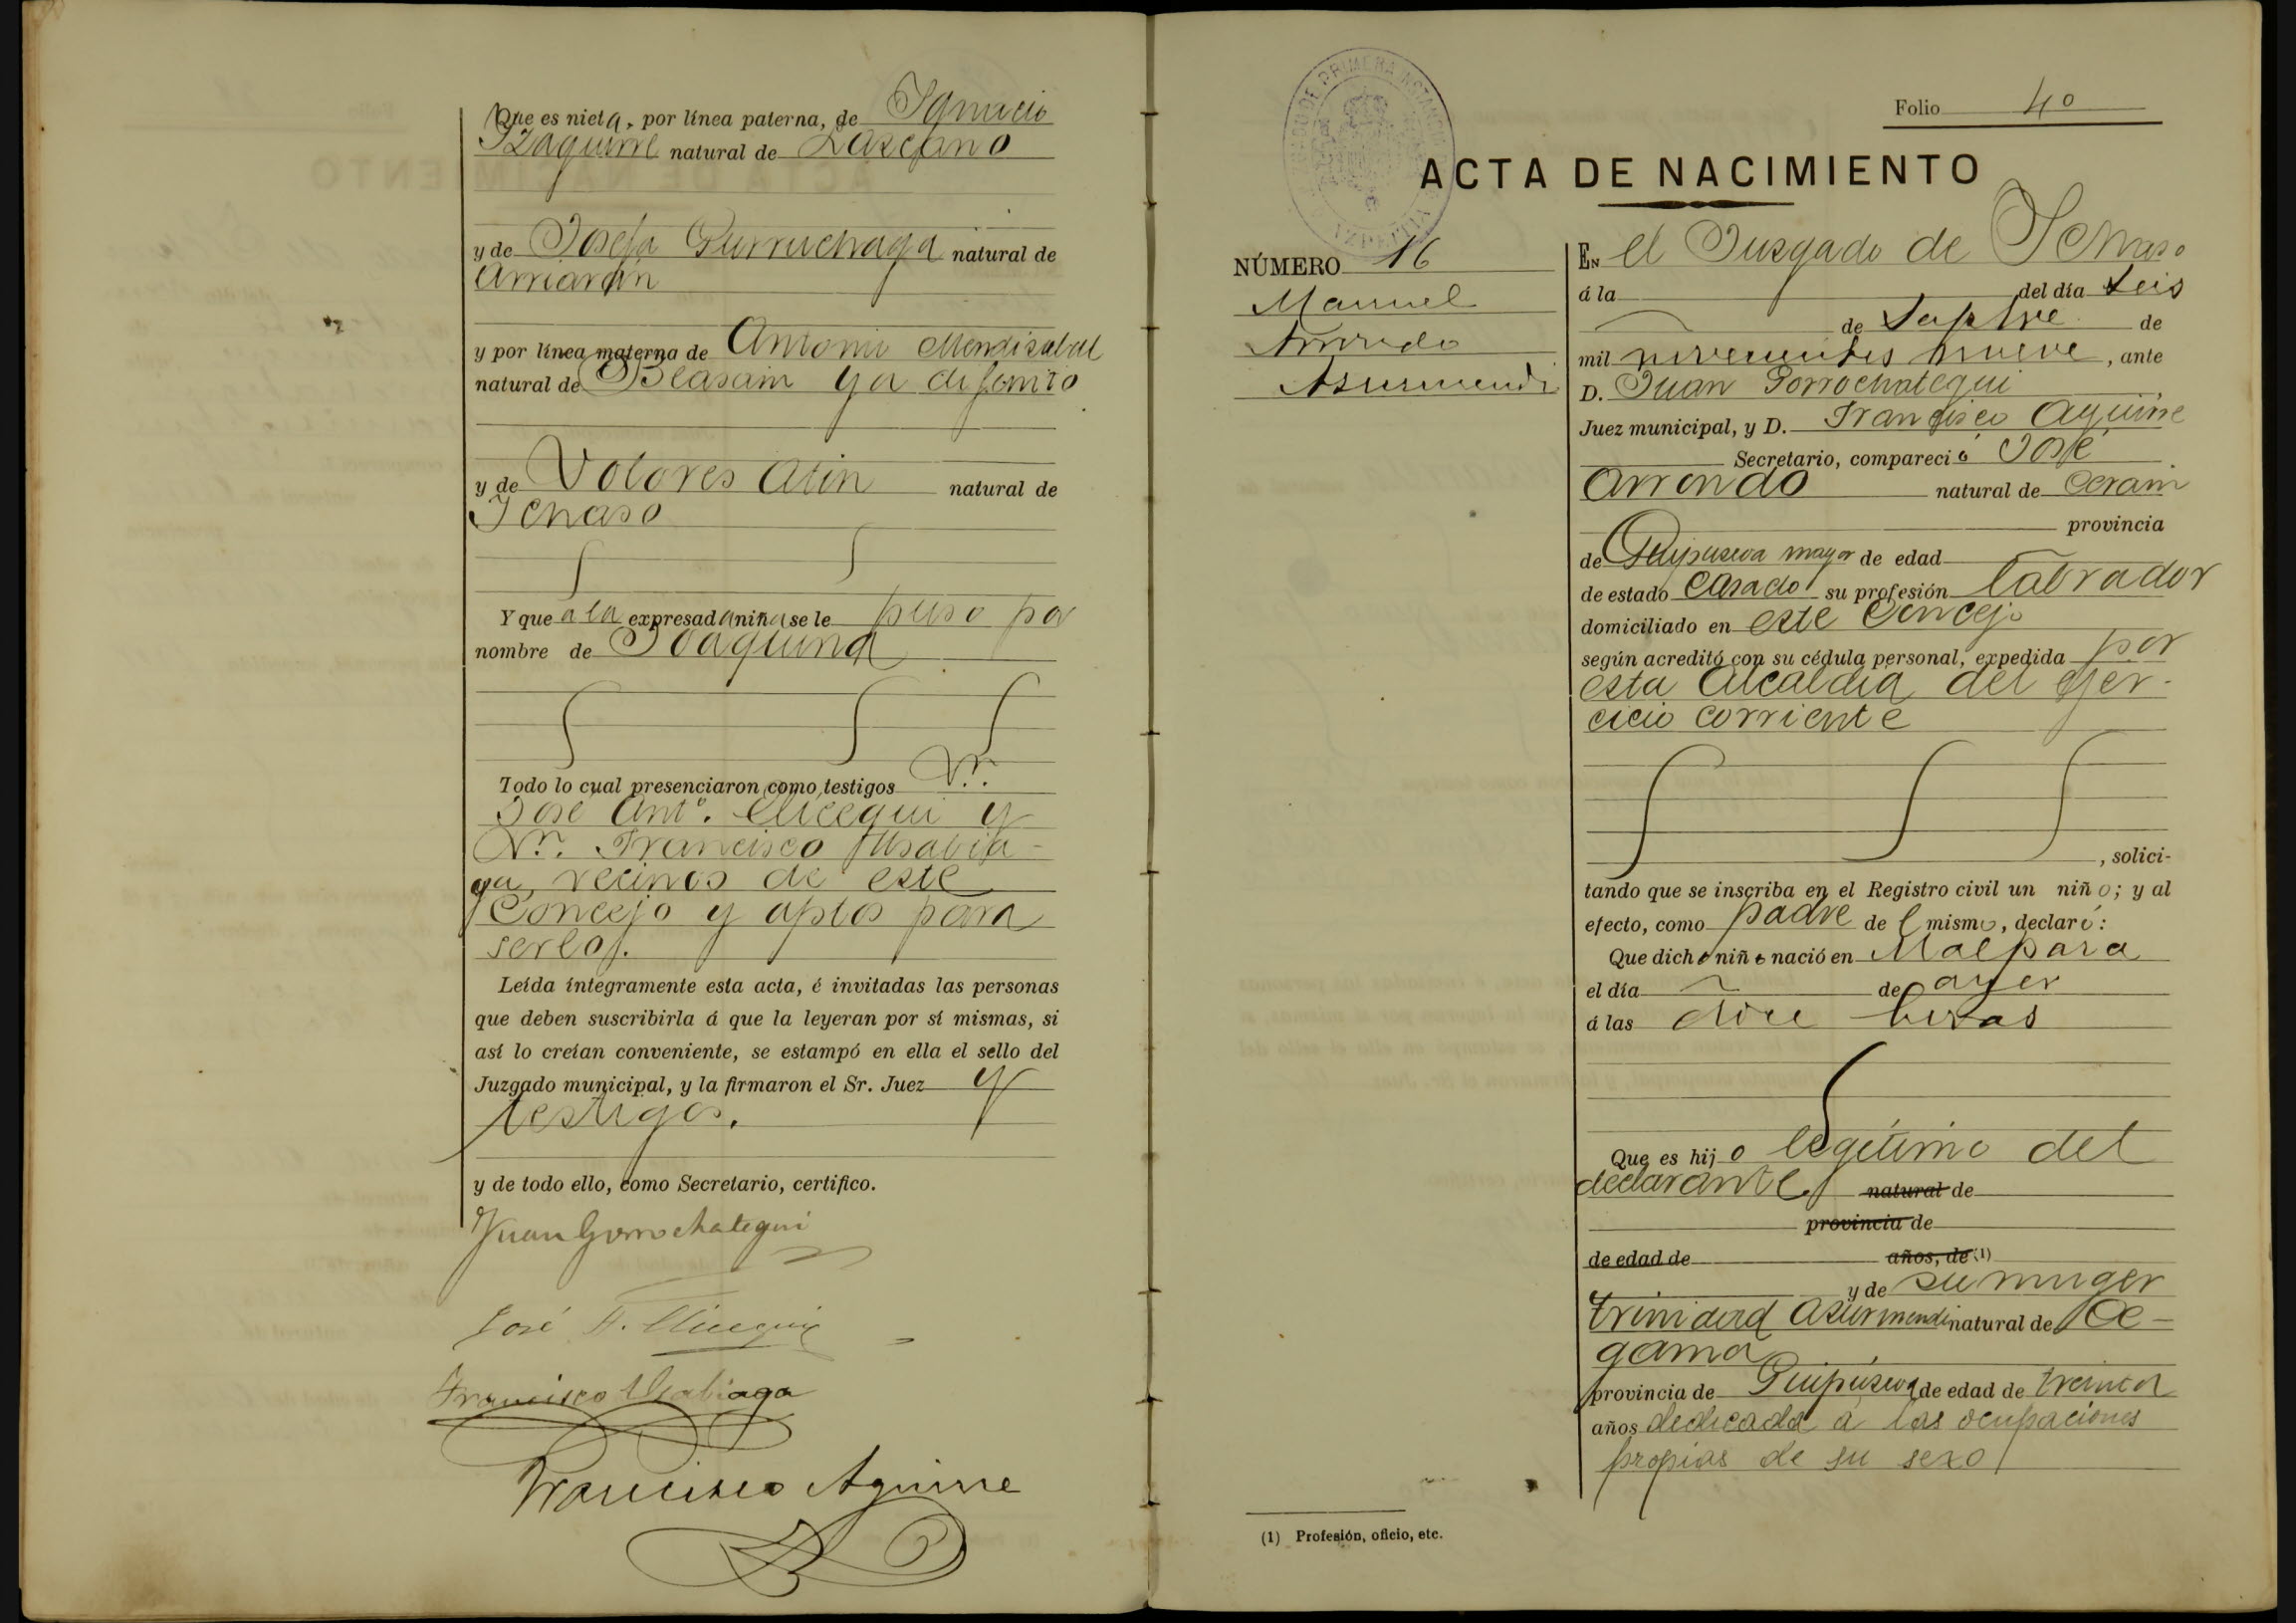 Que es nieta, por línea paterna, de Ygnacio
Yzaguirre natural de Lazcano
y de Josefa Gurruchaga natural de
Arriarán
y por línea materna de Antonio Mendizabal
natural de Beasain ya difunto
y de Dolores Alin natural de
Ychaso
Y que a la expresada niña se le puso por
nombre de Joaquina
Todo lo cual presenciaron como testigos Dn.
José Antº. Elicegui y
Dn. Francisco Usabia-
ga, vecinos de este
Concejo y aptos para
serlo.
Leída íntegramente esta acta, é invitadas las personas
que deben suscribirla á que la leyeran por sí mismas, si
así lo creían conveniente, se estampó en ella el sello del
Juzgado municipal, y la firmaron el Sr. Juez y
testigos.
y de todo ello, como Secretario, certifico.
Juan Gorrochategui
José A. Elicegui
Francisco Usabiaga
Francisco Aguirre
Folio 40
JUZGADO DE PRIMERA INSTANCIA
AZPEITIA
ACTA DE NACIMIENTO
NÚMERO 16
Manuel
Arrondo
Asurmendi
EN el Juzgado de Ychaso
á la del día seis
de Sepbre de
mil novecientos nueve, ante
D. Juan Gorrochategui
Juez municipal, y D. Francisco Aguirre
Secretario, compareció José
Arrondo natural de Cerain
provincia
de Guipuzcoa mayor de edad
de estado casado su profesión labrador
domiciliado en este Concejo
según acreditó con su cédula personal, expedida por
esta Alcaldia del ejer-
cicio corriente
, solici-
tando que se inscriba en el Registro civil un niño; y al
efecto, como padre del mismo, declaró:
Que dicho niño nació en Malpara
el día de ayer
á las doce horas
Que es hijo legitimo del
declarante natural de
provincia de
de edad de años, de (1)
y de su muger
Trinidad Asurmendi natural de Ce-
gama
provincia de Guipúzcoa de edad de treinta
años dedicada á las ocupaciones
propias de su sexo
(1) Profesión, oficio, etc.